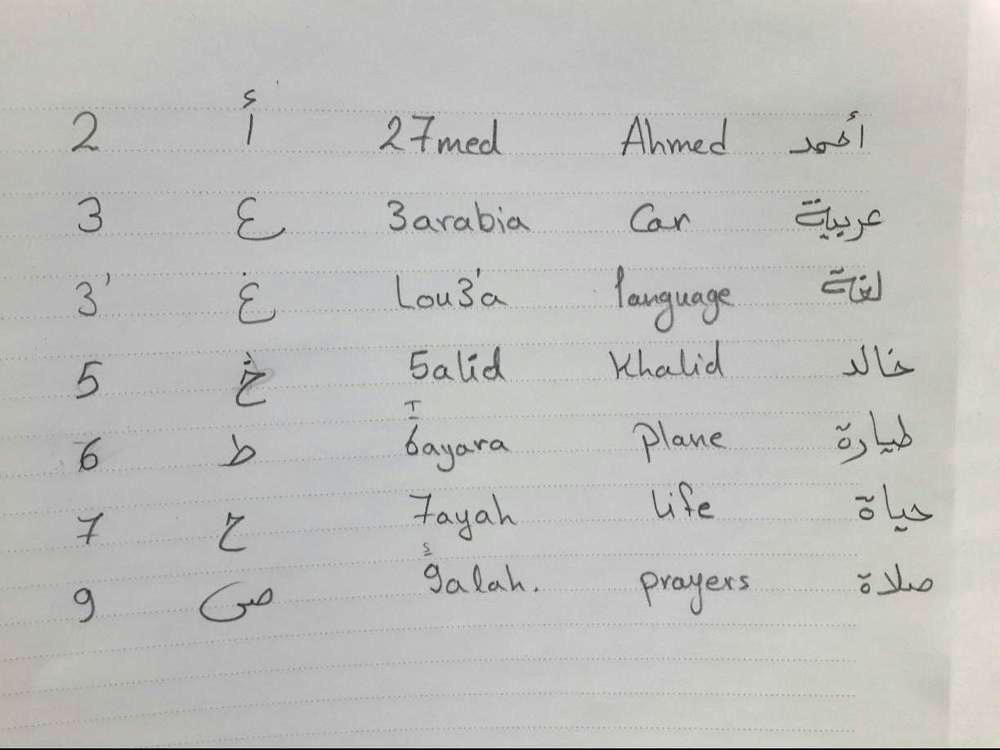 2 أ 27med Ahmed أحمد
3 ع 3arabia Car عربية
3' غ Lou3'a language لغة
5 خ 5alid Khalid خالد
T
6 ط 6ayara plane طيارة
7 ح 7ayah life حياة
S
9 ص 9alah. prayers صلاة